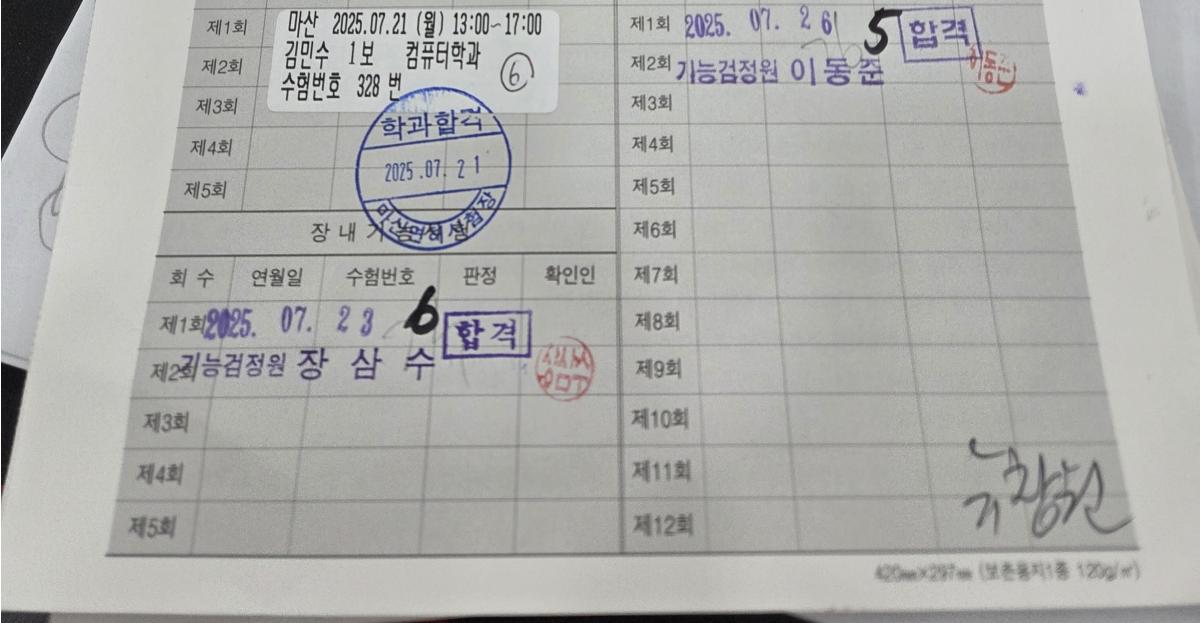 제1회
마산 2025.07.21 (월) 13:00~17:00
제2회
김민수 1보 컴퓨터학과
⑥
제3회
수험번호 328 번
제4회
제5회
학과합격
2025.07.21
마산면허시험장
장 내 기
회 수 연월일 수험번호 판정 확인인
제1회 2025. 07. 23 6 합격
제2회 기능검정원 장 삼 수
제3회
제4회
제5회
제1회 2025. 07. 26 5 합격
제2회 기능검정원 이 동 준
제3회
제4회
제5회
제6회
제7회
제8회
제9회
제10회
제11회
제12회
420㎜×297㎜ (보존용지1종 120g/㎡)